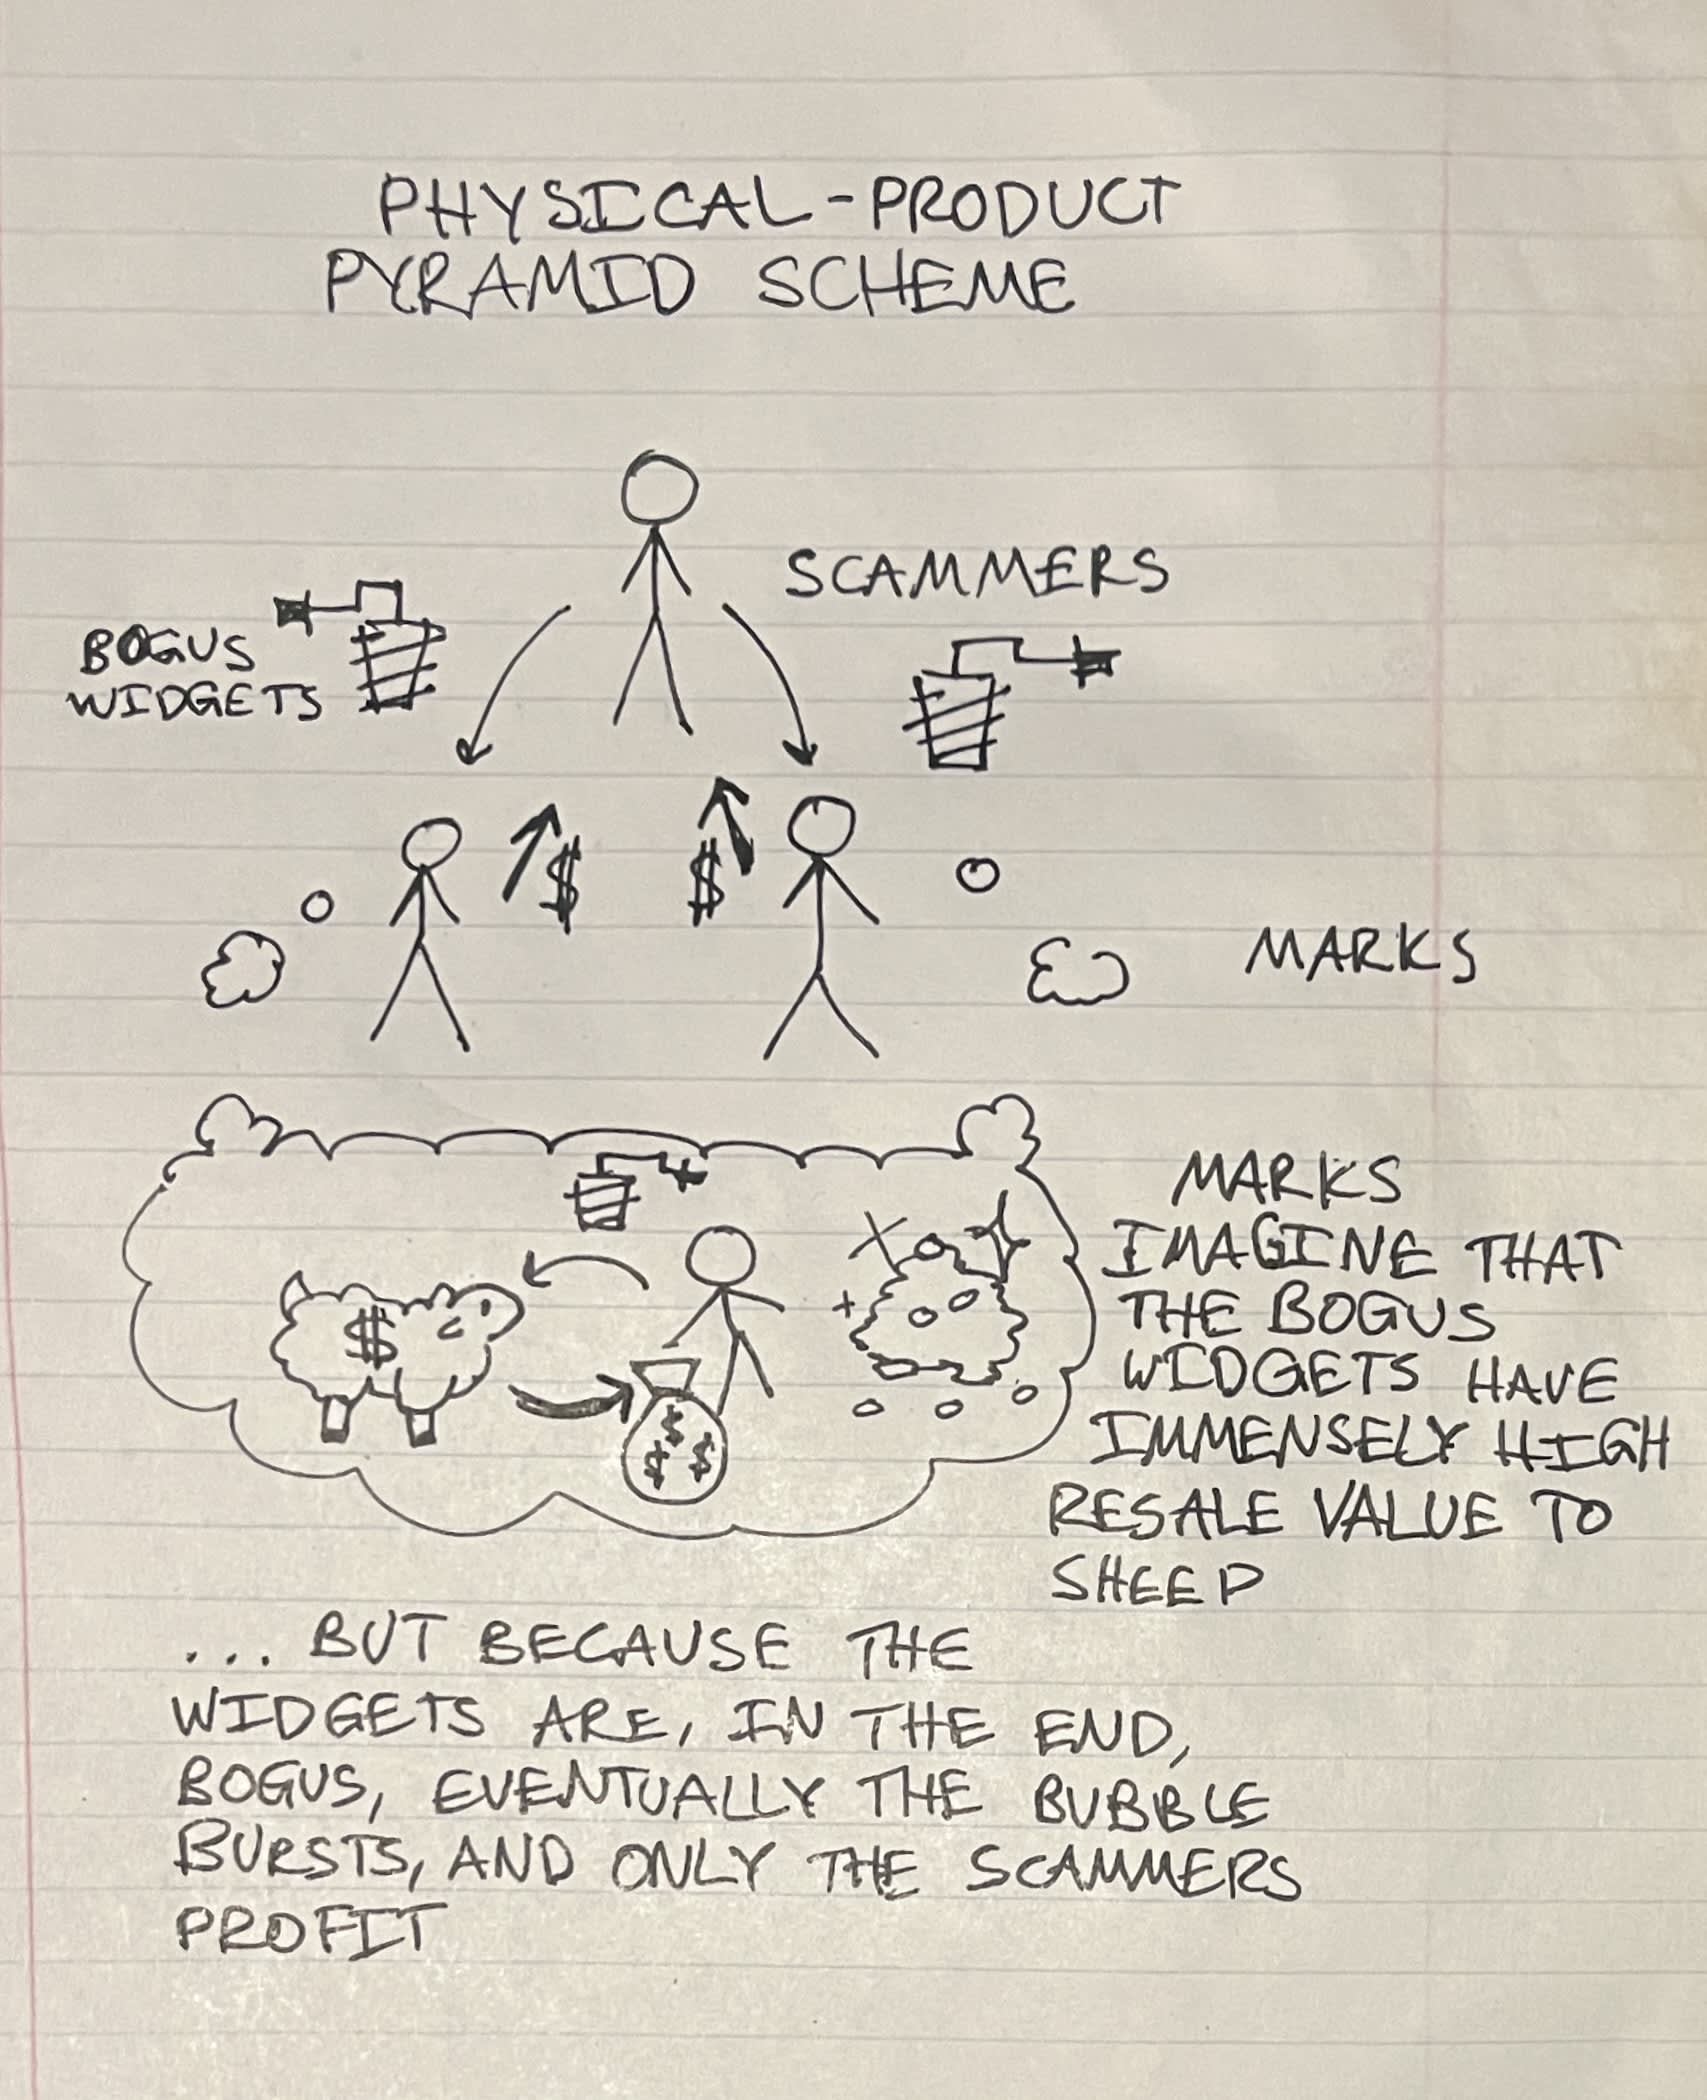 PHYSICAL-PRODUCT
PYRAMID SCHEME
SCAMMERS
BOGUS
WIDGETS
$ $
MARKS
MARKS
IMAGINE THAT
THE BOGUS
WIDGETS HAVE
IMMENSELY HIGH
RESALE VALUE TO
SHEEP
$
$
$ $
... BUT BECAUSE THE
WIDGETS ARE, IN THE END,
BOGUS, EVENTUALLY THE BUBBLE
BURSTS, AND ONLY THE SCAMMERS
PROFIT